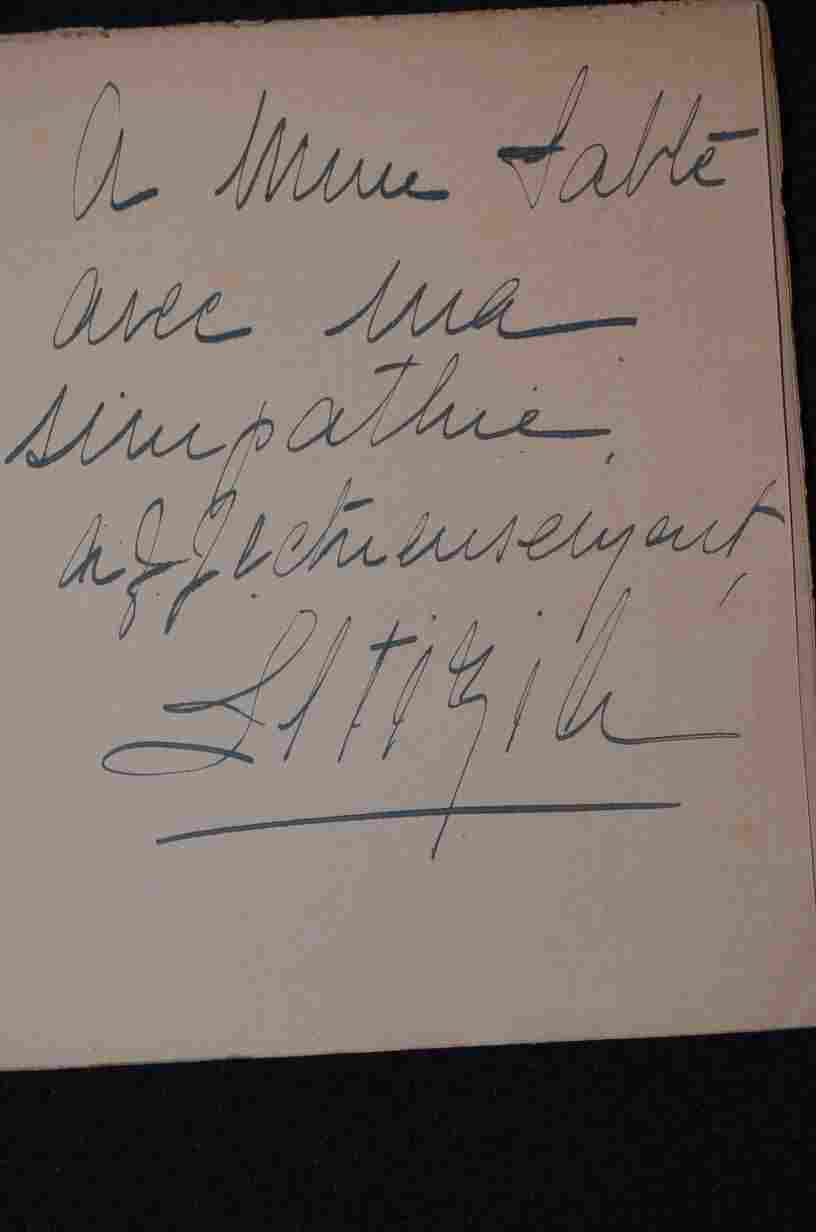 A Mme Sablé
avec ma
simpathie,
affectueusement,